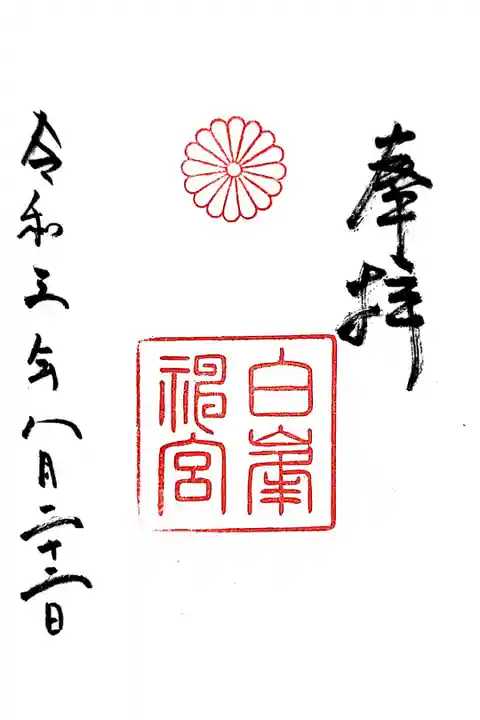 奉拝
白峯
神宮
令和三年八月二十二日